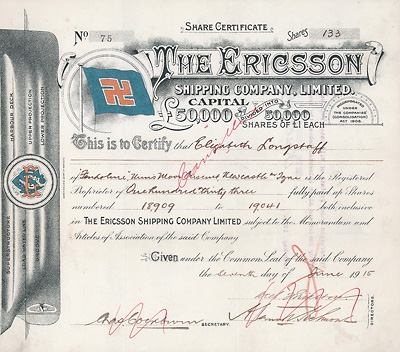 SHARE CERTIFICATE
No 75
Shares 133
THE ERICSSON
SHIPPING COMPANY, LIMITED.
CAPITAL
£50,000 DIVIDED INTO 50,000
SHARES OF £1 EACH
INCORPORATED
UNDER THE
COMPANIES
(CONSOLIDATION)
ACT 1908.
HARBOUR DECK
UPPER PROTECTION
LOWER PROTECTION
This is to Certify that Elizabeth Longstaff
of Newcastle on Tyne is the Registered
Proprietor of One hundred thirty three fully paid up Shares
numbered 18909 to 19041 both inclusive
in THE ERICSSON SHIPPING COMPANY LIMITED, subject to the Memorandum and
Articles of Association of the said Company
Given under the Common Seal of the said Company
the Seventh day of June 1915
SECRETARY.
DIRECTORS.
Cancelled